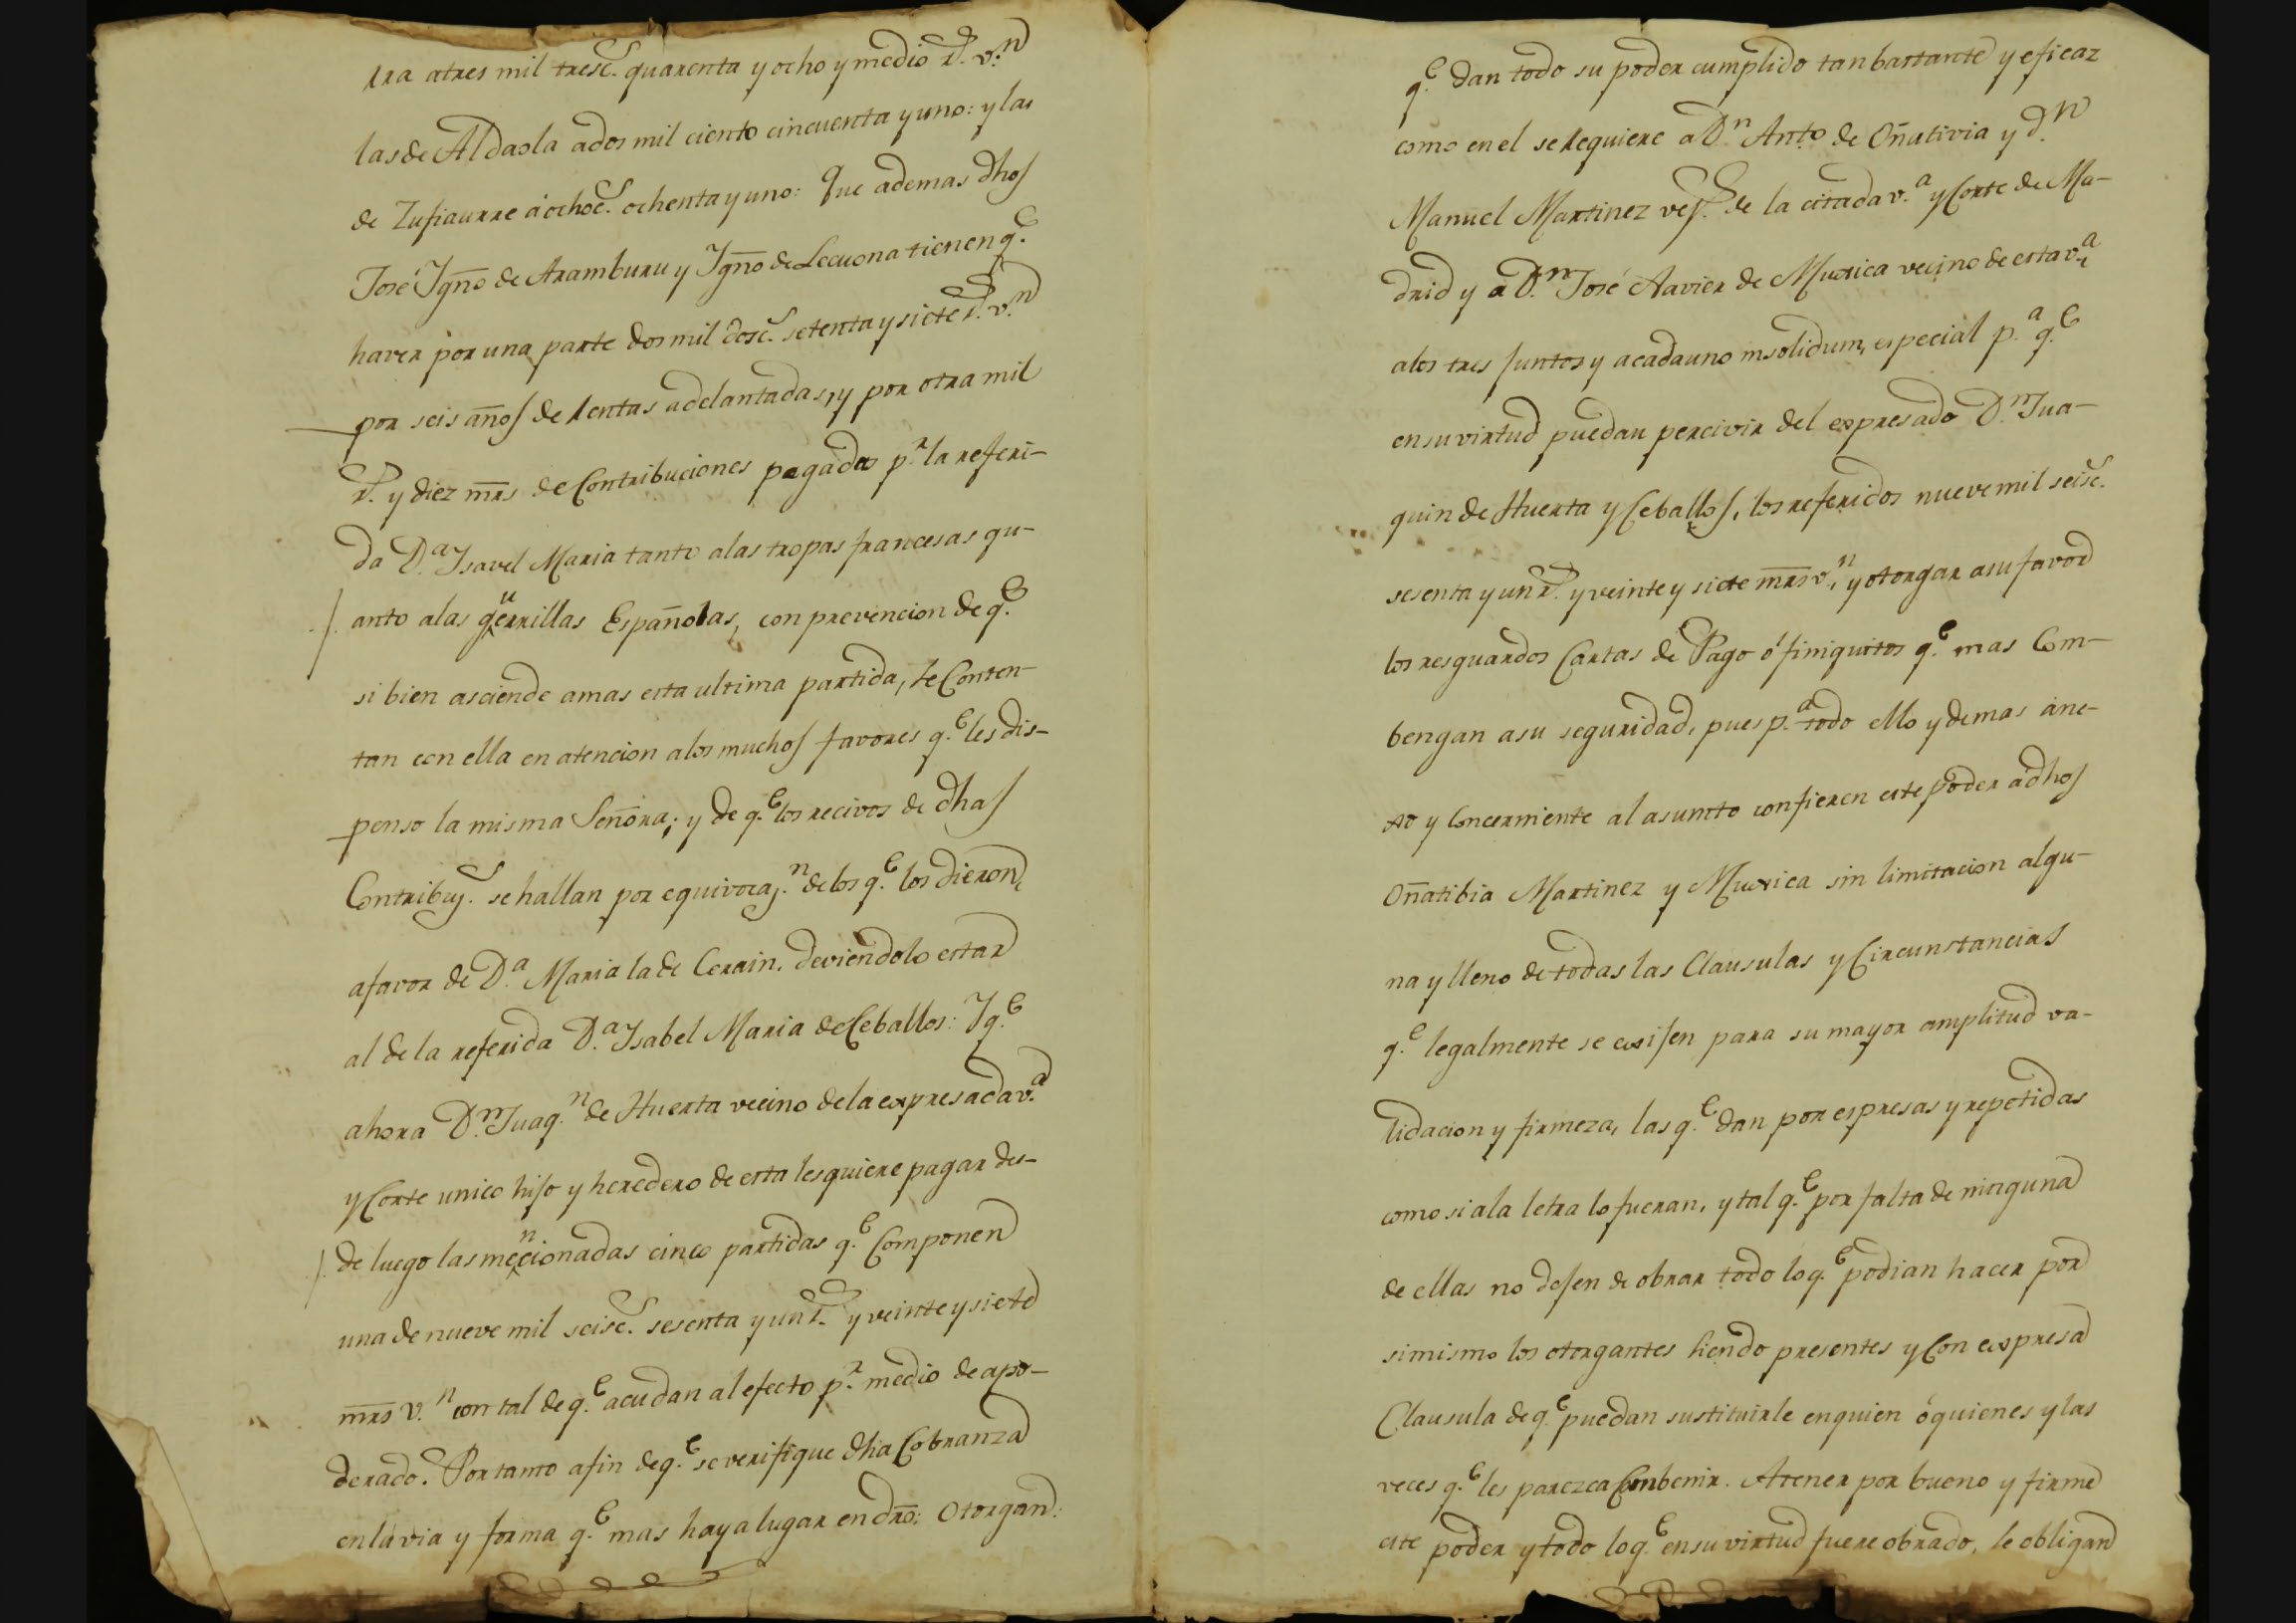 rra atres mil tresc.s quarenta y ocho y medio r.s v.n
las de Aldaola ados mil ciento cincuenta y uno: y las
de Zufiaurre á ochoc.s ochenta y uno: Que ademas dhos
José Ygño de Aramburu y Ygño de Lecuona tienen q.e
haver por una parte dos mil dosc.s setenta y siete r.s v.n
por seis años de rentas adelantadas, y por otra mil
r.s y diez mrs de Contribuciones pagadas p.r la referi-
da D.a Isavel Maria tanto alas tropas francesas qu-
anto alas guerrillas Españolas, con prevencion de q.e
si bien asciende amas esta ultima partida, se Conten-
tan con ella en atencion alos muchos favores q.e les dis-
penso la misma Señora; y de q.e los recivos de dhas
Contribuc.s se hallan por equivocac.n de los q.e los dieron,
afavor de D.a Maria la de Cerain, deviendolo estar
al de la referida D.a Isabel Maria de Ceballos: Y q.e
ahora D.n Juaq.n de Huerta vecino de la expresada v.a
y Corte unico hijo y heredero de esta les quiere pagar des-
de luego las mencionadas cinco partidas q.e Componen
una de nueve mil seisc.s sesenta y un r.s y veinte y siete
mrs v.n con tal de q.e acudan al efecto p.r medio de apo-
derado. Por tanto afin de q.e se verifique dha Cobranza
en la via y forma q.e mas haya lugar en dro: Otorgan:
q.e dan todo su poder cumplido tan bastante y eficaz
como en el se requiere a D.n Ant.o de Oñativia y d.n
Manuel Martinez vec.s de la citada v.a y Corte de Ma-
drid y a D.n José Xavier de Muxica vecino de esta v.a
alos tres juntos y acada uno insolidum, especial p.a q.e
en su virtud puedan percivir del expresado D.n Jua-
quin de Huerta y Ceballos, los referidos nueve mil seisc.s
sesenta y un r.s y veinte y siete mrs v.n y otorgar asu favor
los resguardos Cartas de Pago ó finiquitos q.e mas Com-
bengan asu seguridad, pues p.a todo ello y demas ane-
xo y Concerniente al asumto confieren este poder adhos
Oñatibia Martinez y Muxica sin limitacion algu-
na y lleno de todas las Clausulas y Circunstancias
q.e legalmente se exijen para su mayor amplitud va-
lidacion y firmeza, las q.e dan por espresas y repetidas
como si ala letra lo fueran, y tal q.e por falta de ninguna
de ellas no dejen de obrar todo lo q.e podian hacer por
simismo los otorgantes siendo presentes y Con expresa
Clausula de q.e puedan sustituirle en quien ó quienes y las
veces q.e les parezca Conbenir. A tener por bueno y firme
este poder y todo lo q.e en su virtud fuere obrado, se obligan